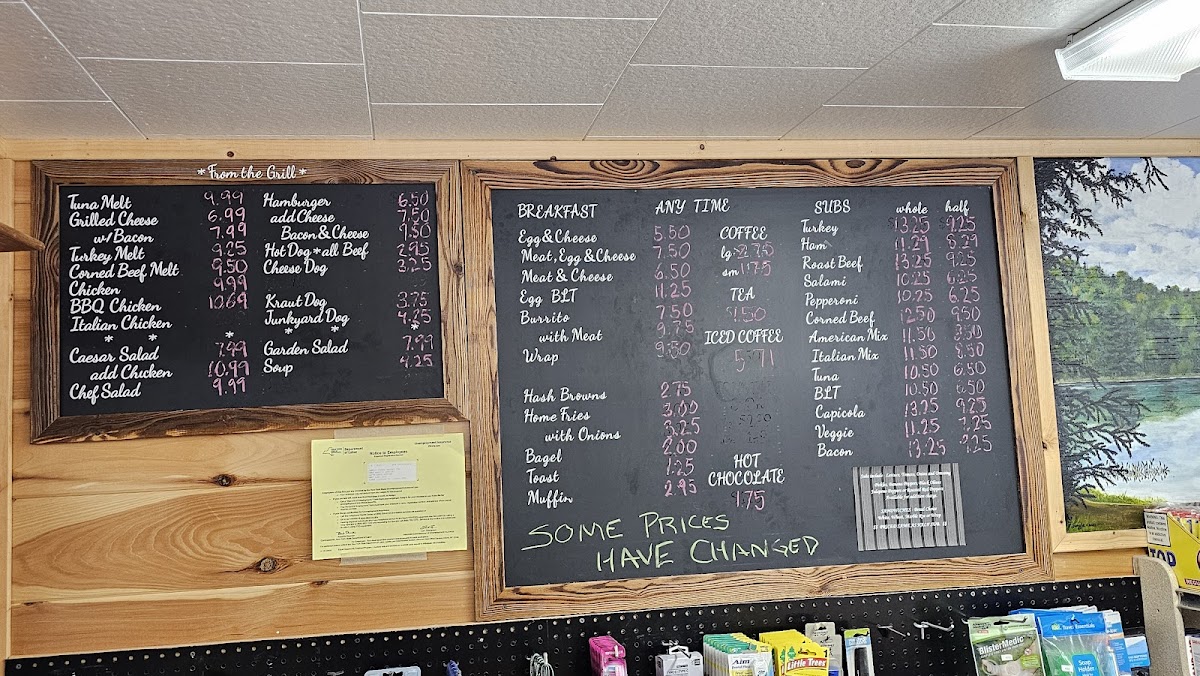 *From the Grill*
Tuna Melt 9.99
Grilled Cheese 6.99
w/ Bacon 7.99
Turkey Melt 9.25
Corned Beef Melt 9.50
Chicken 9.99
BBQ Chicken 10.69
Italian Chicken
* * *
Caesar Salad 7.99
add Chicken 10.99
Chef Salad 9.99
Hamburger 6.50
add Cheese 7.50
Bacon & Cheese 9.50
Hot Dog *all Beef 2.95
Cheese Dog 3.25
Kraut Dog 3.75
Junkyard Dog 4.25
* * *
Garden Salad 7.99
Soup 4.25
BREAKFAST ANY TIME
Egg & Cheese 5.50
Meat, Egg & Cheese 7.50
Meat & Cheese 6.50
Egg BLT 11.25
Burrito 7.50
with Meat 9.75
Wrap 9.50
Hash Browns 2.75
Home Fries 3.00
with Onions 3.25
Bagel 2.00
Toast 1.25
Muffin 2.95
COFFEE
lg 2.75
sm 1.75
TEA
1.50
ICED COFFEE
HOT
CHOCOLATE
1.75
SUBS whole half
Turkey 13.25 9.25
Ham 11.29 8.29
Roast Beef 13.25 9.25
Salami 10.25 6.25
Pepperoni 10.25 6.25
Corned Beef 12.50 9.50
American Mix 11.50 8.50
Italian Mix 11.50 8.50
Tuna 10.50 6.50
BLT 10.50 6.50
Capicola 13.25 9.25
Veggie 11.25 7.25
Bacon 13.25 9.25
SOME PRICES
HAVE CHANGED
Department
of Labor
Notice to Employees
BlisterMedic
Travel Essentials
Soap
Holder
Aim
Little Trees
TOP